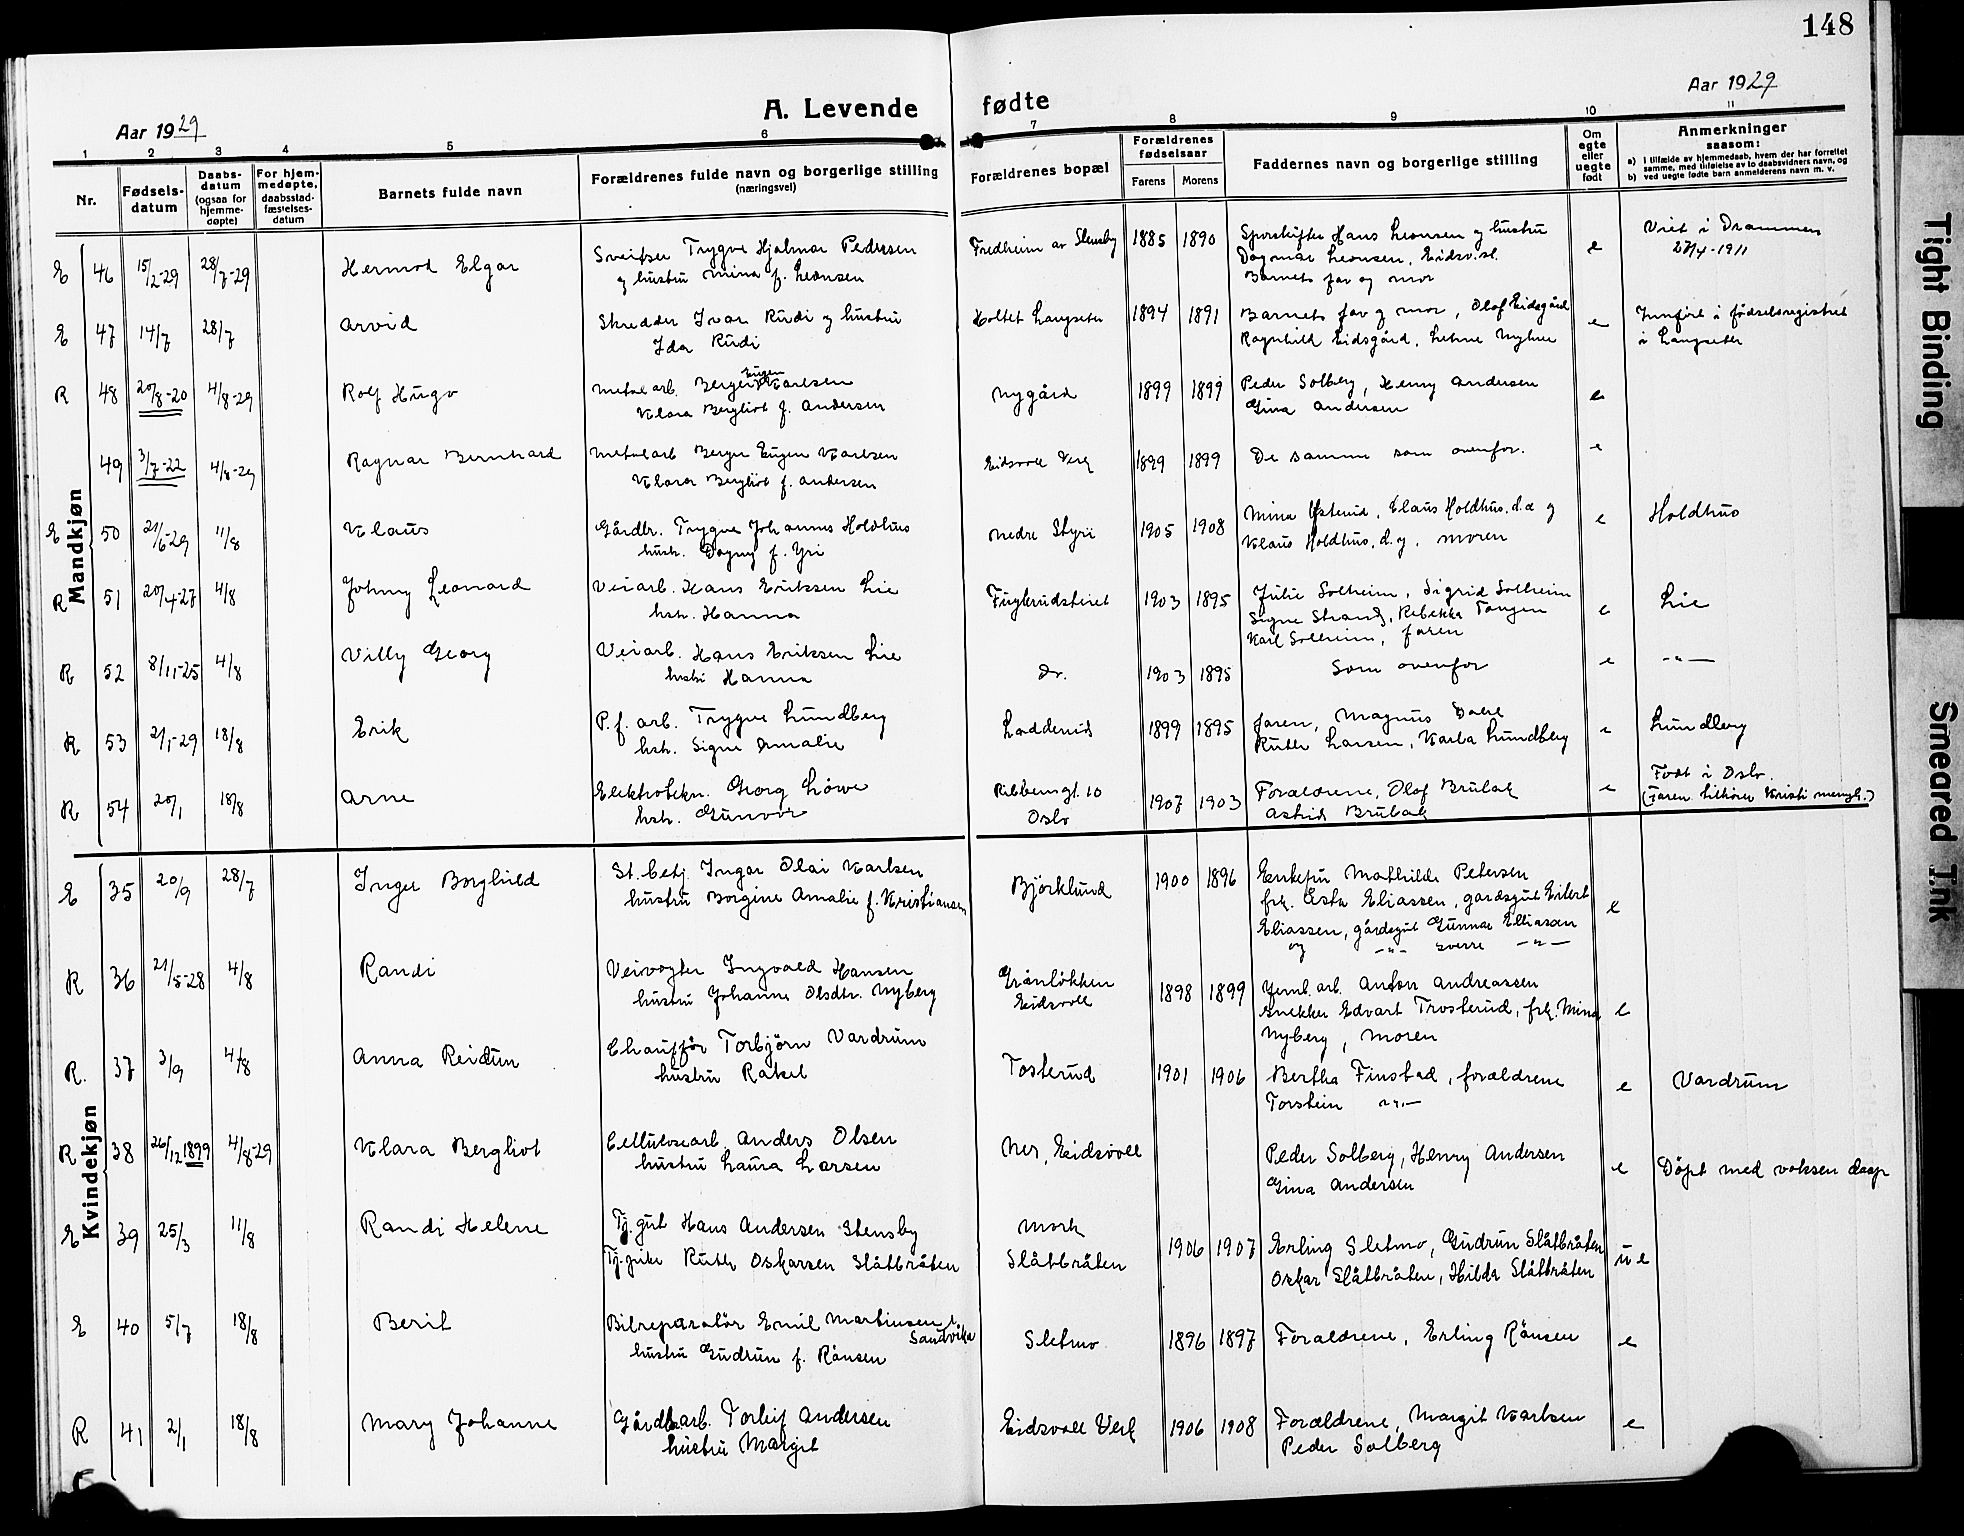 148
Aar 1929
A. Levende fødte
Aar 1929
1 2 3 4 5 6 7 8 9 10 11
Nr.
Fødsels-datum
Daabs-datum (ogsaa for hjemme-døpte)
For hjem-medøpte, daabsstad-fæstelses-datum
Barnets fulde navn
Forældrenes fulde navn og borgerlige stilling
(næringsvei)
Forældrenes bopæl
Forældrenes fødselsaar
Farens Morens
Faddernes navn og borgerlige stilling
Om egte eller uegte født
Anmerkninger
saasom:
a) i tilfælde av hjemmedaab, hvem der har forrettet
samme, med tilføielse av to daabsvidners navn, og
b) ved uegte fødte barn anmelderens navn m. v.
Mandkjøn
E 46 15/2-29 28/7-29 Hermod Elgar Sveitser Trygve Hjalmar Pedersen Fredheim av Stensby 1885 1890 Hans Leonsen og hustru e Viet i Drammen
og hustru Mina f. Leonsen Dagmar Leonsen, Eidsv.st. 27/4-1911
Barnets far og mor
E 47 14/7 28/7 Arvid Skredder Ivar Rudi og hustru Holtet Langseter 1894 1891 Barnets far og mor, Olof Eidsgård e Innført i fødselsregistret
Ida Rudi Ragnhild Eidsgård, i Langseter
R 48 20/8-20 4/8-29 Rolf Hugo Metalarb. Berger Eugen Karlsen Nygård 1899 1899 Peder Solberg, Henry Andersen e
Klara Bergliot f. Andersen Gina Andersen
49 3/7-22 4/8-29 Ragnar Bernhard Metalarb Berger Eugen Karlsen Eidsvoll Verk 1899 1899 De samme som ovenfor. e
Klara Bergliot f. Andersen
E 50 21/6-29 11/8 Klaus Gårdbr. Trygve Johannes Holdhus Nedre Styri 1905 1908 Mina Østerud, Claus Holdhus, d.e og e Holdhus
hustr. Dagny f. Yri Klaus Holdhus, d.y. moren
R 51 20/4-27 4/8 Johny Leonard Veiarb. Hans Eriksen Lie Fuglerudsteiet 1903 1895 Julie Solheim, Sigrid Solheim e Lie
hstr. Hanna Signe Strand, Rebekka Tangen
Karl Solheim, faren
R 52 8/11-25 4/8 Villy Georg Veiarb. Hans Eriksen Lie Do. 1903 1895 Som ovenfor e -"-
hustru Hanna
R 53 2/1-29 18/8 Erik P.f. arb. Trygve Lundberg Ladderud 1899 1895 faren, Magnus e Lundberg
hstr. Signe Amalie Ruth Larsen, Karla Lundberg
R 54 20/1 18/8 Arne Elektrotekn. Georg Löwe Ribbemgt. 10 1907 1903 Foreldrene, Olof Brubak e Født i Oslo.
hstr. Gunvor Oslo Astrid Brubak (Faren tilhører Kristi mengh.)
Kvindekjøn
E 35 20/9 28/7 Inger Borghild St.betj. Ingar Olai Karlsen Björklund 1900 1896 Enkefru Mathilde Petersen e
hustru Borgine Amalie f. Kristiansen frk. Asta Eliassen, gardsgut Eilert
Eliassen, gårdsgut Gunnar Elliasson
og -"- Sverre -"-
R 36 21/5-28 4/8 Randi Veivogter Ingvald Hansen Grönløkken 1898 1899 Jernb. arb. Anton Andreassen e
hustru Johanne Olsdtr. Nyberg Eidsvoll Snekker Edvart Trosterud, frk. Mina
Nyberg, moren
R. 37 3/9 4/8 Anna Reidun Chauffør Torbjörn Vardrum Tosterud 1901 1906 Bertha Finstad, foreldrene e Vardrum
hustru Rakel Torstein -"-
R 38 26/12 1899 4/8-29 Klara Bergliot Cellulosearb. Anders Olsen Nes, Eidsvoll Peder Solberg, Henry Andersen e Döpt med voksen daap
hustru Laura Larsen Gina Andersen
E 39 25/3 11/8 Randi Helene Tj.gut Hans Andersen Stensby Mork 1906 1907 Erling Sletmo, Gudrun Slåtbråten ue
Tj.pike Ruth Oskarsen Slåtbråten Slåtbråten Oskar Slåtbråten, Hilda Slåtbråten
E 40 5/7 18/8 Berit Bilreparatör Emil Martinsen Sandvika Sletmo 1896 1897 Foreldrene, Erling Rånsen e
hustru Gudrun f. Rånsen
R 41 2/1 18/8 Mary Johanne Gårdbarb. Torleif Andersen Eidsvoll Verk 1906 1908 Foreldrene, Margit Karlsen e
hustru Margit Peder Solberg
Tight Binding
Smeared Ink